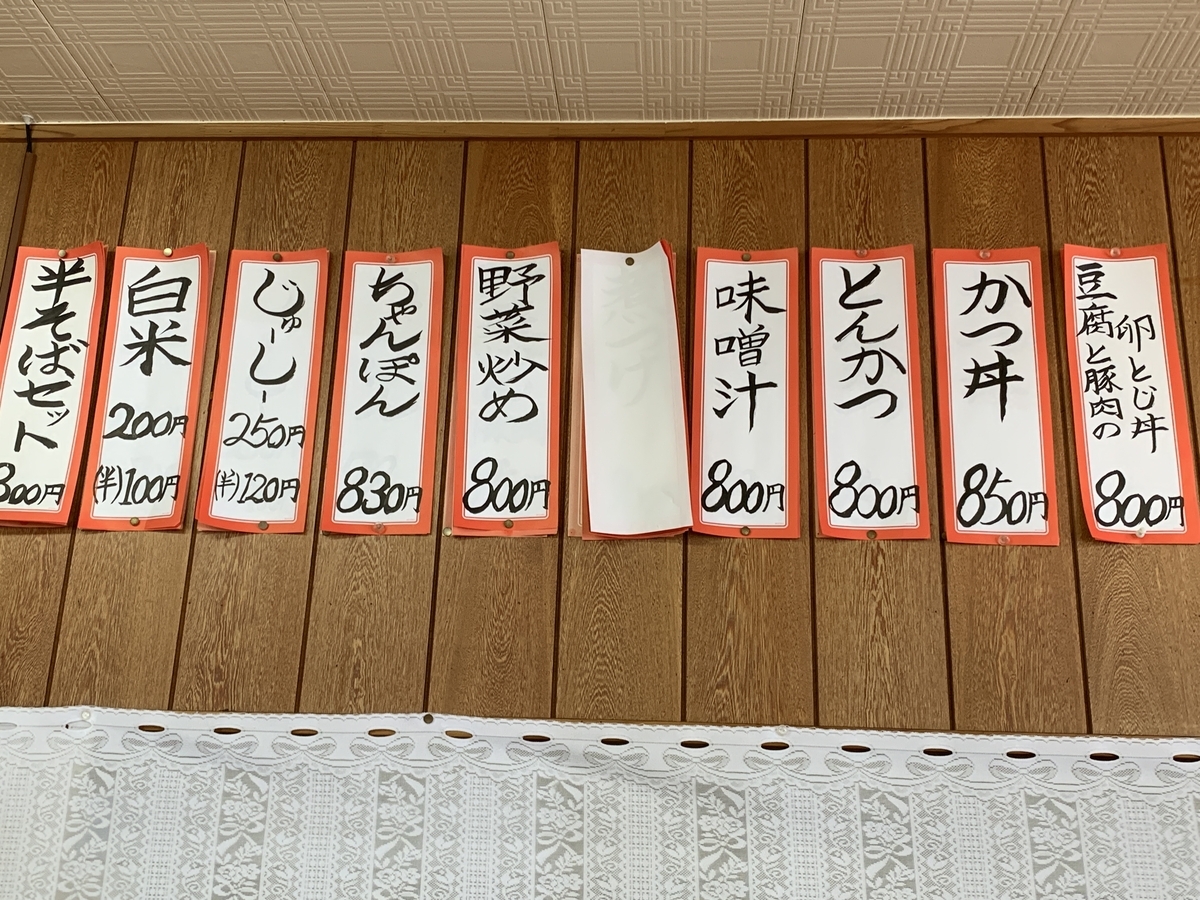 豆腐と豚肉の
卵とじ丼
800円
かつ丼
850円
とんかつ
800円
味噌汁
800円
野菜炒め
800円
ちゃんぽん
830円
じゅーしー
250円
(半)120円
白米
200円
(半)100円
半そばセット